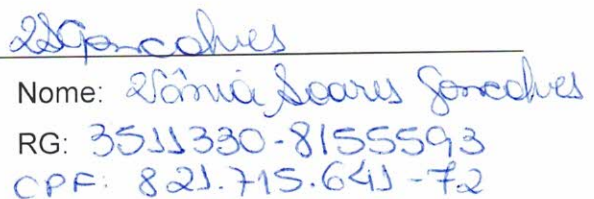 VSGoncalves
Nome: Vânia Soares Goncalves
RG: 3511330-8155593
CPF: 821.715.641-72